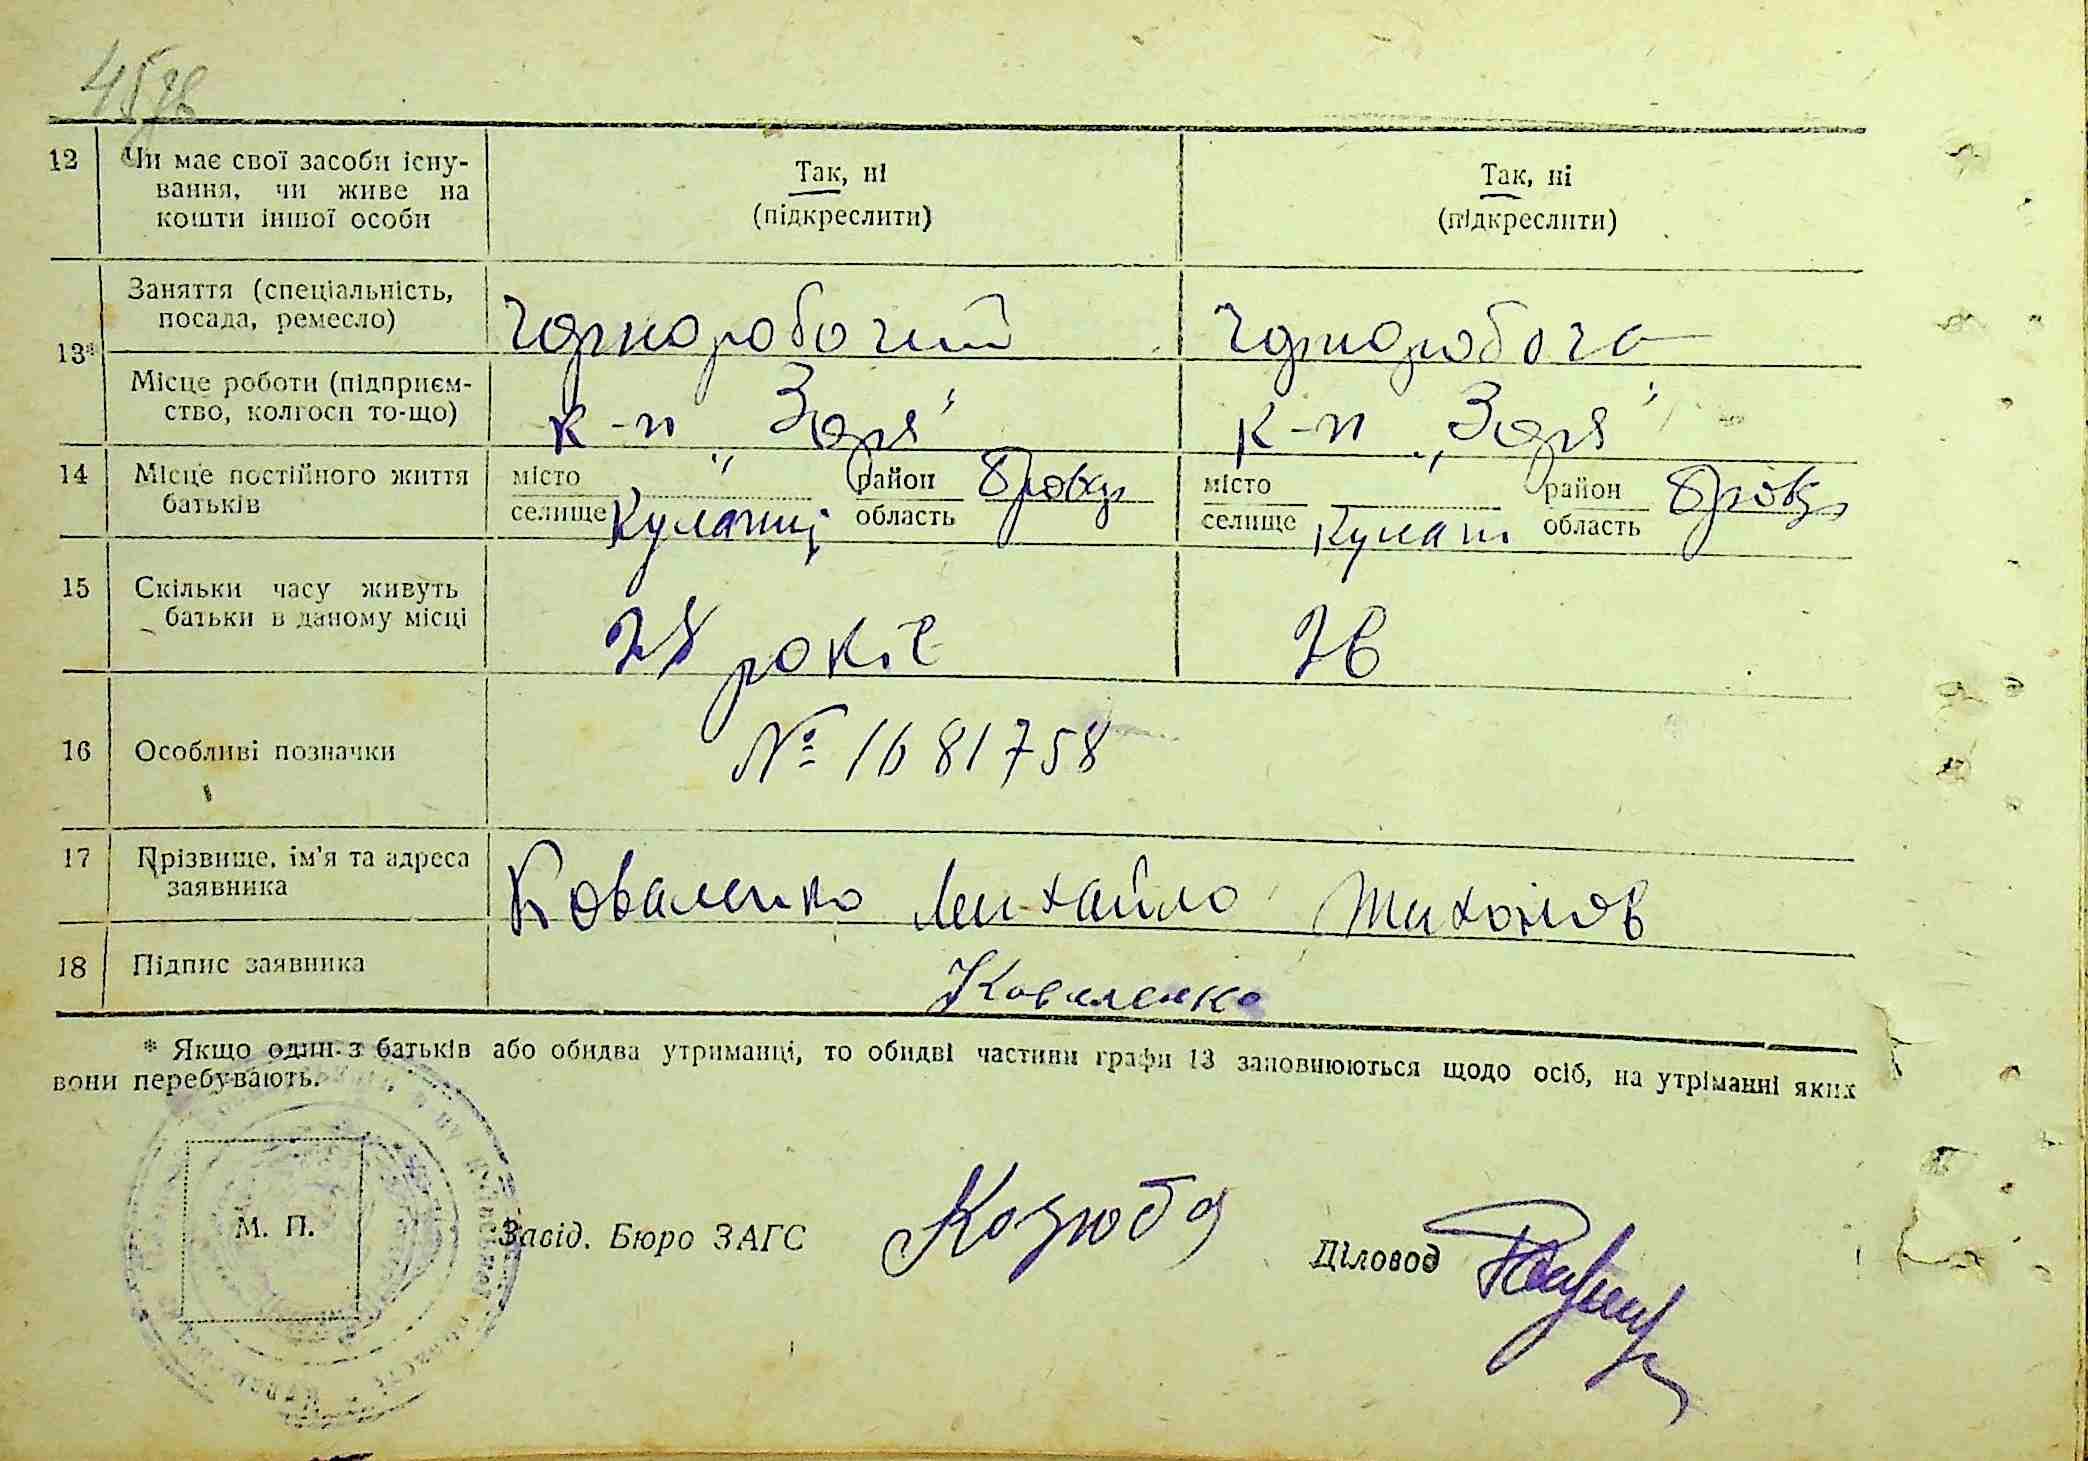 45зв
12 Чи має свої засоби існу-
вання, чи живе на
кошти іншої особи
Так, ні
(підкреслити)
Так, ні
(підкреслити)
13*
Заняття (спеціальність,
посада, ремесло)
Чорноробочий
Чорноробоча
Місце роботи (підприєм-
ство, колгосп то-що)
к-п „Зоря“
к-п „Зоря“
14 Місце постійного життя
батьків
місто
селище
район
область
місто
селище
район
область
15 Скільки часу живуть
батьки в даному місці
28 років
26
16 Особливі позначки
№ 1681758
17 Прізвище, ім'я та адреса
заявника
Коваленко Михайло Тихонов
18 Підпис заявника
Коваленко
* Якщо один з батьків або обидва утриманці, то обидві частини графи 13 заповнюються щодо осіб, на утріманні яких
вони перебувають.
М. П.
Завід. Бюро ЗАГС
Козюба
Діловод